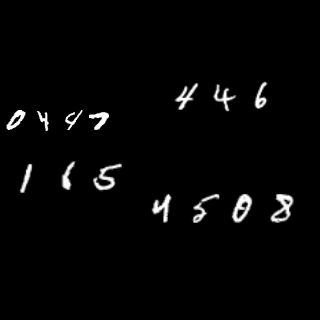 446
0447
165
4508